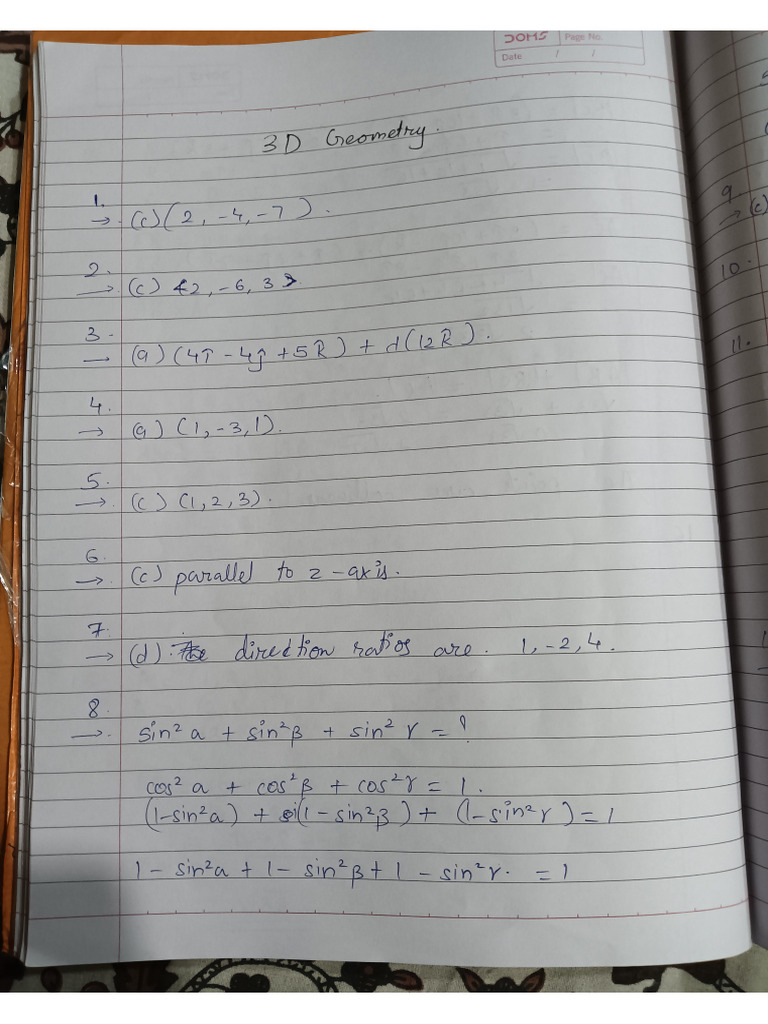 DOMS Page No.
Date / /
3D Geometry.
1.
→ (c) (2, -4, -7).
2.
→ (c) <2, -6, 3>
3.
→ (a) (4î - 4ĵ + 5k̂) + d(12k̂).
4.
→ (a) (1, -3, 1).
5.
→ (c) (1, 2, 3).
6.
→ (c) parallel to z-axis.
7.
→ (d) direction ratios are. 1, -2, 4.
8.
→ sin² α + sin² β + sin² γ = ?
cos² α + cos² β + cos² γ = 1.
(1-sin² α) + (1 - sin² β) + (1-sin² γ) = 1
1 - sin² α + 1 - sin² β + 1 - sin² γ. = 1
9
→ (c)
10.
11.